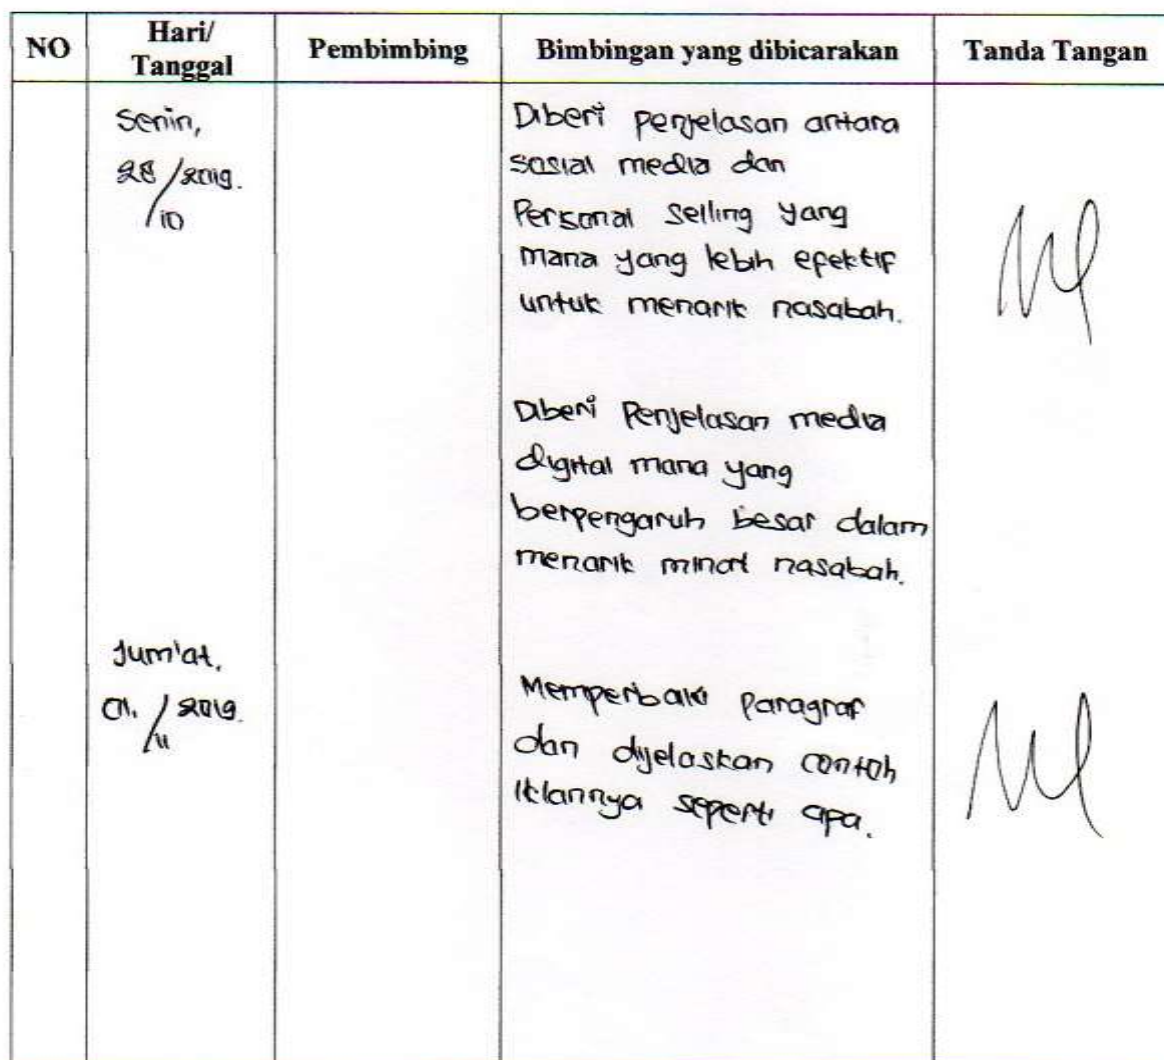 NO Hari/ Tanggal Pembimbing Bimbingan yang dibicarakan Tanda Tangan
Senin,
28/10 2019.
Diberi penjelasan antara
sosial media dan
Personal Selling yang
mana yang lebih efektif
untuk menarik nasabah.
Diberi Penjelasan media
digital mana yang
berpengaruh besar dalam
menarik minat nasabah.
Jum'at.
01. /11 2019.
Memperbaiki Paragraf
dan dijelaskan contoh
Iklannya seperti apa.